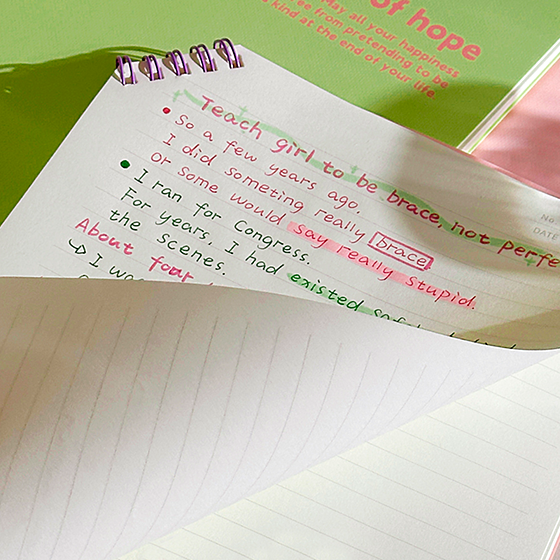 of hope
May all your happiness
ee from pretending to be
kind at the end of your life
Teach girl to be brace, not perfe
So a few years ago,
I did someting really brace,
or some would say really stupid.
I ran for Congress.
For years, I had existed
the scenes.
About four
I was
DATE